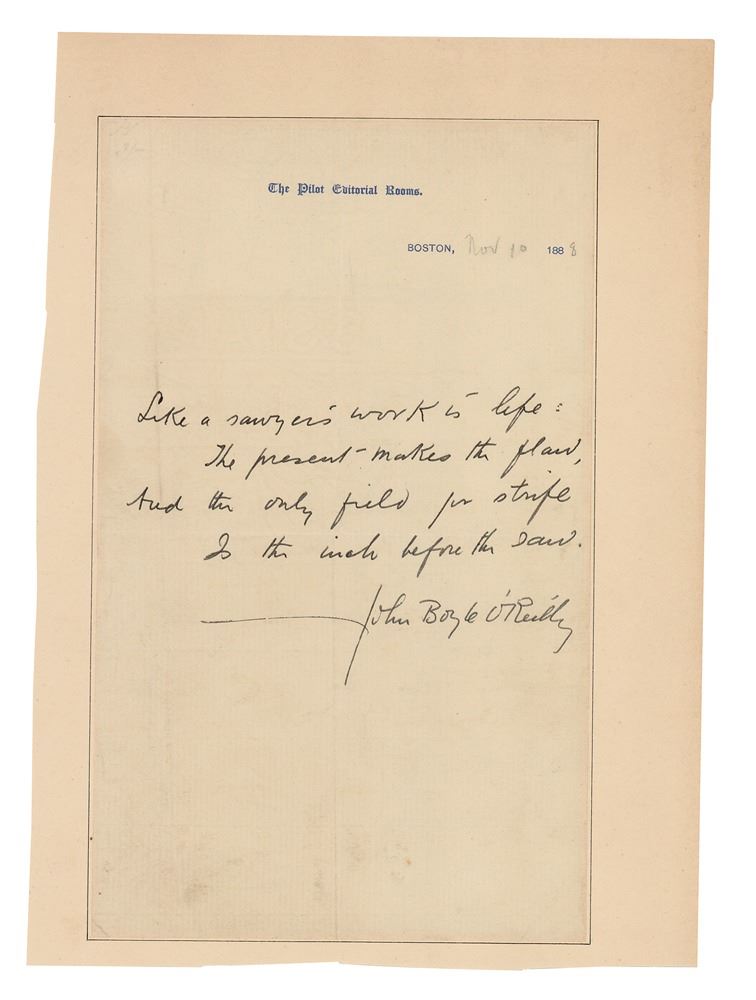 The Pilot Editorial Rooms.
BOSTON, Nov 10 1888
Like a sawyer's work is life:
The present makes the flaw,
And the only field for strife
Is the inch before the saw.
John Boyle O'Reilly